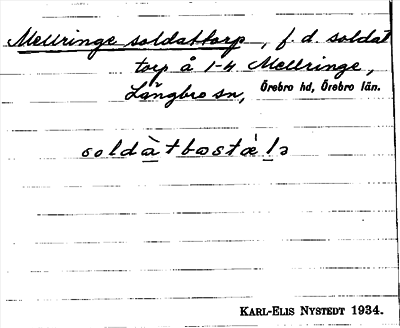 Mellringe soldattorp, f. d. soldat
torp å 1-4 Mellringe,
Längbro sn, Örebro hd, Örebro län.
soldàtbɷstæ̀lɘ
KARL-ELIS NYSTEDT 1934.